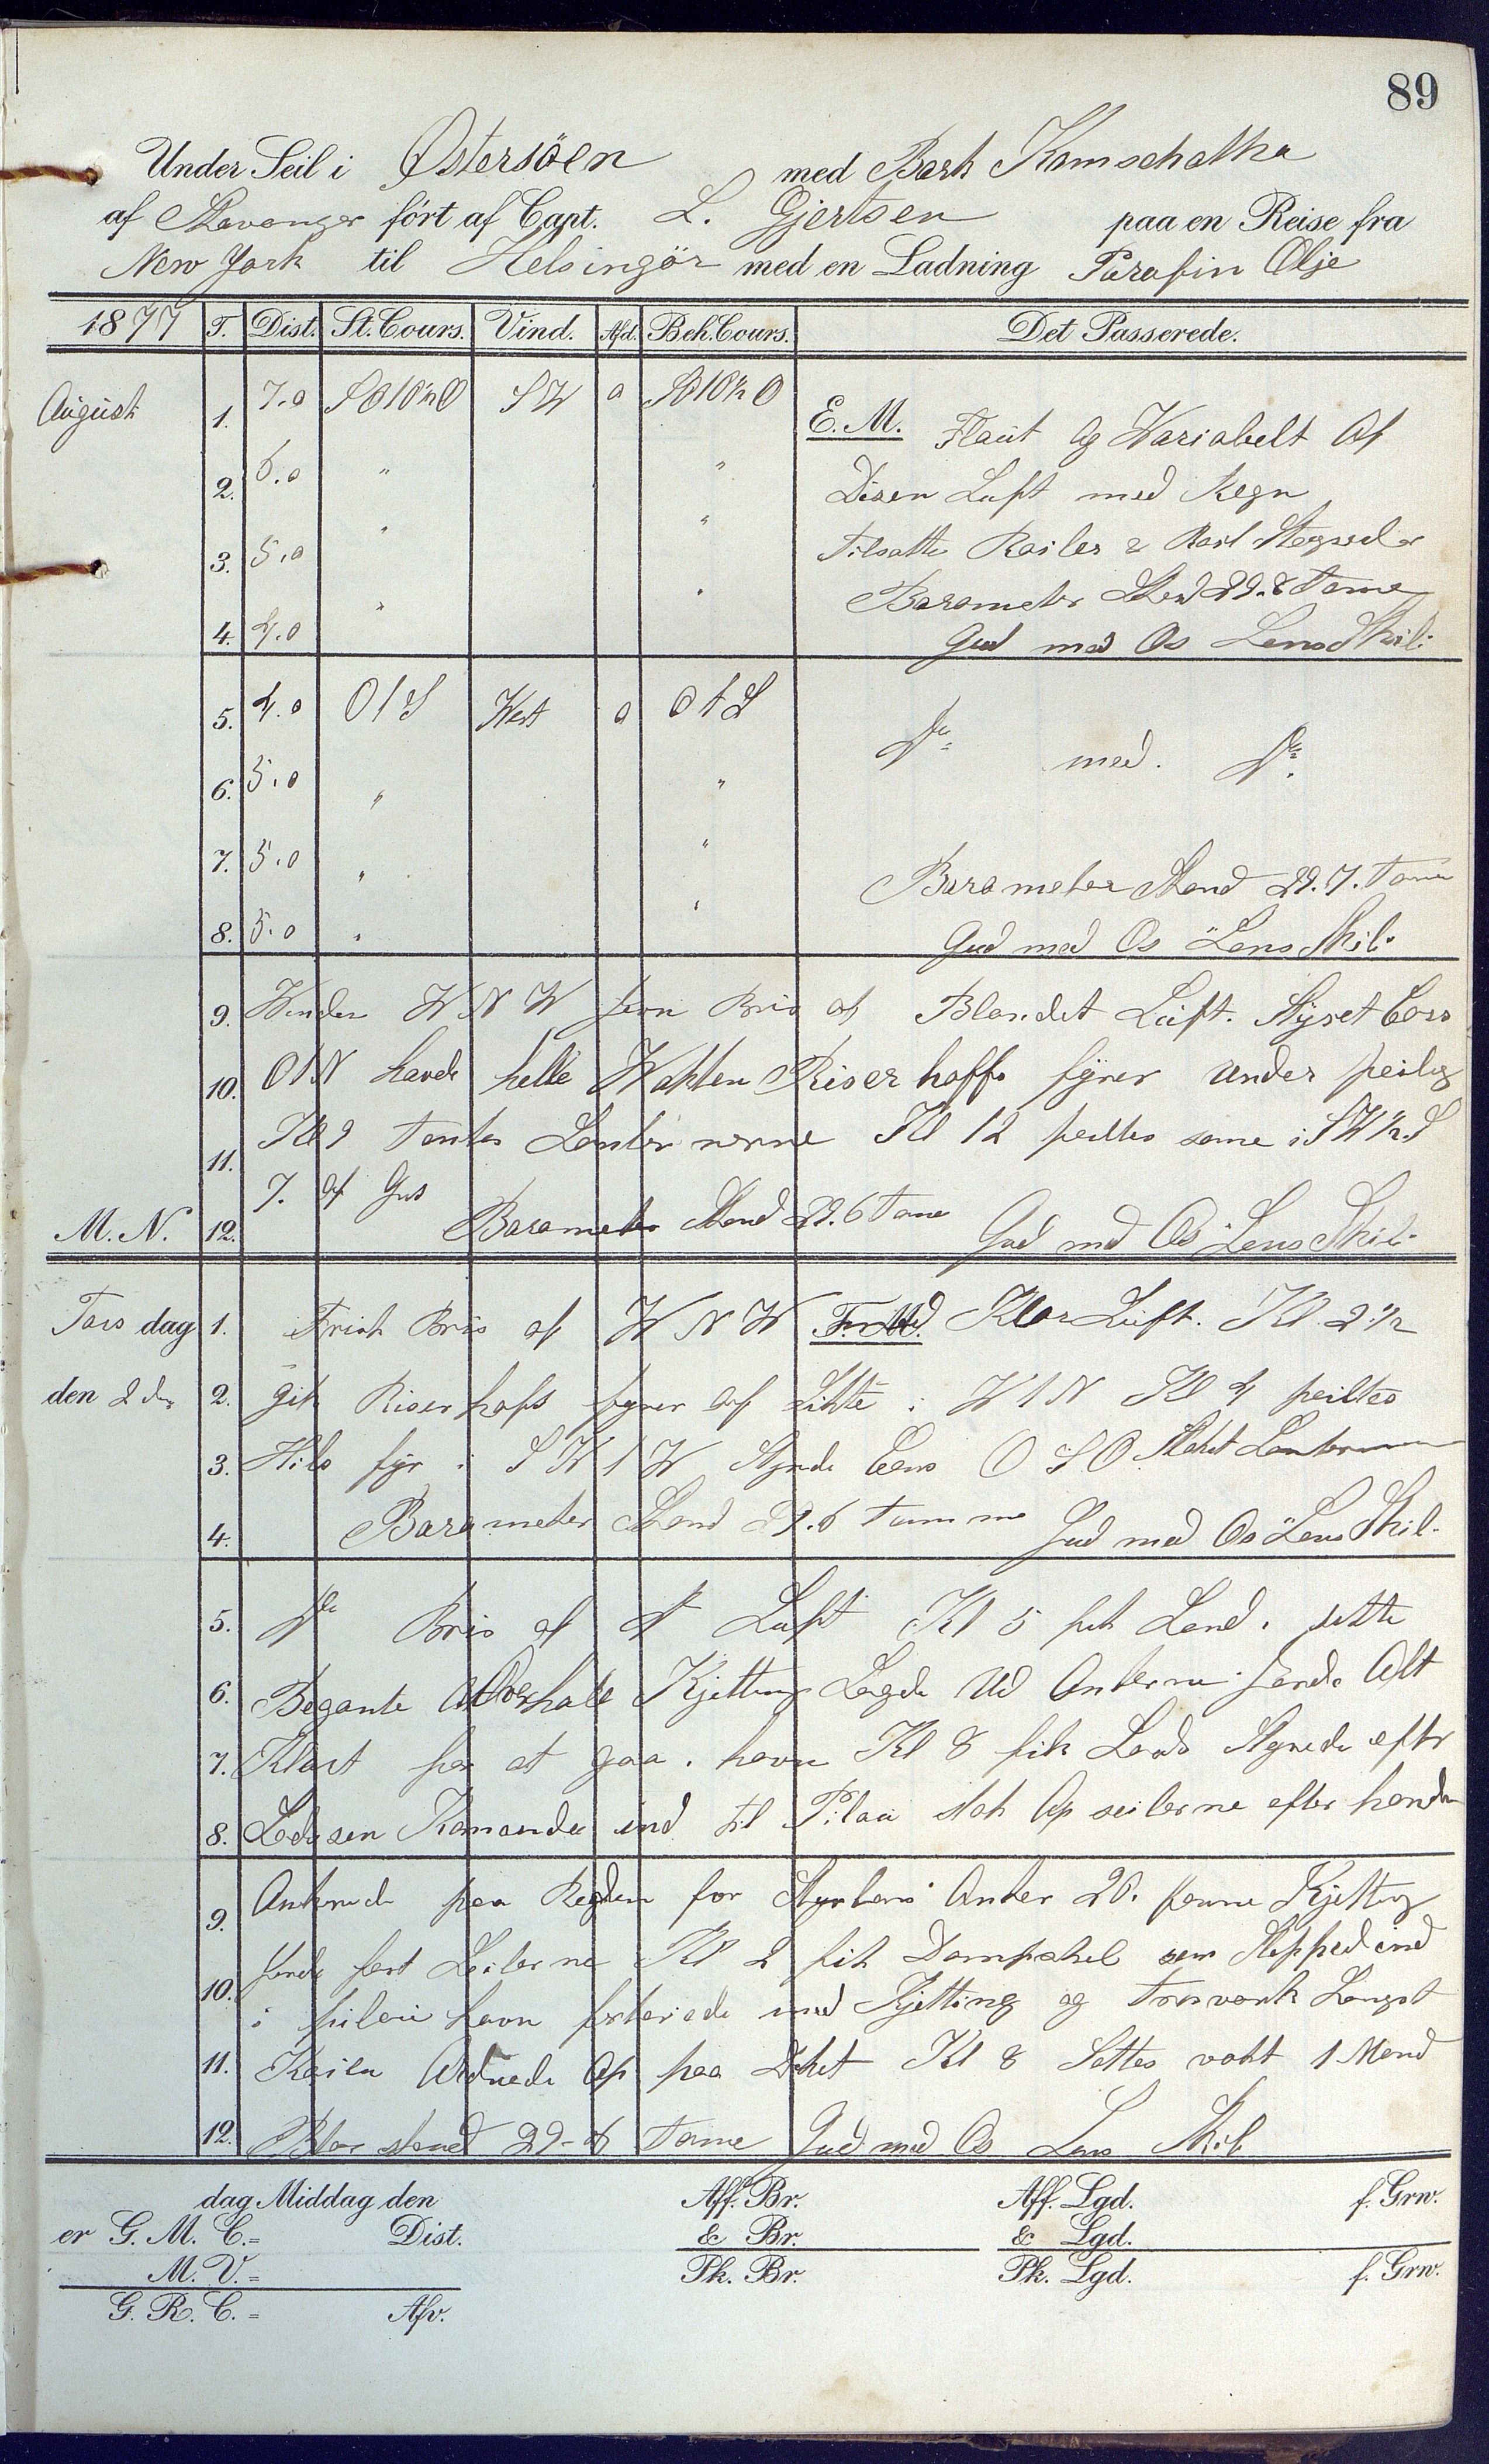 89
Under Seil i Østersöen med Bark Kamschatka
af Stavanger fört af Capt. L. Gjertsen paa en Reise fra
New York til Helsingör med en Ladning Parafin Olje
1877 T. Dist. St. Cours. Vind. Afd. Beh. Cours. Det Passerede.
August 1. 7.0 SO10½O SW 0 SO10½O E.M. Flaut og Wariabelt Af
2. 6.0 " " Disen Luft med Regn
3. 5.0 " " Tilsatte Roiler &
4. 4.0 " " Barometer Stand 29.8 Tome
Gud med Os Lens Skib.
5. 4.0 O t S West 0 O t S Do med. Do.
6. 5.0 " "
7. 5.0 " " Barometer Stand 29.7. Tome
8. 5.0 " " Gud med Os Lens Skib.
9. Vinden W N W jevn Bris af Blandet Luft. Styret Cors
10. O t N havde helle Wakten Riserhoffs fyrer under peiling
11. Kl 9 Tentes Lanternerne Kl 12 peiltes same i SW½S
7. af Gus
M. N. 12. Barometer Stand 29.6 Tome Gud med Os Lens Skib.
Tors dag 1. Frisk Bris af W N W F.M. Klar Luft. Kl. 2½
den 2den 2. gik Riserhofs fyrer af Sikte i W t N Kl 4 peiltes
3. Hils fyr i S W t W Styrede Cors O S O Slukt Lanternerne
4. Barometer Stand 29.6 Tomme Gud med Os Lens Skib.
5. Do Bris af Do Luft Kl 5 fik Land i sikte
6. Begynte Overhale Kjetting Lagde Ud Ankerne gjorde Alt
7. Klart for at gaa i havn Kl 8 fik Lods Styrede efter
8. Lodsen Komando ind til Pilau tok Op seilerne efter handen
9. Ankrede paa Reden for Styrbors Anker 20. favne Kjetting
10. gjorde fast Seilerne Kl 2 fik Dampskib som Slepped ind
i pilau havn fortøiede med Kjetting og Trosverk Langst
11. Kaien Ordnede Op paa Dekket Kl 8 Settes vakt 1 Mand
12. Bar stand 29-6 Tome Gud med Os Lens Skib
dag Middag den Aff. Br. Aff. Lgd. f. Grw.
er G. M. C.= Dist. & Br. & Lgd.
M. V.= Pk. Br. Pk. Lgd. f. Grw.
G. R. C.= Afv.